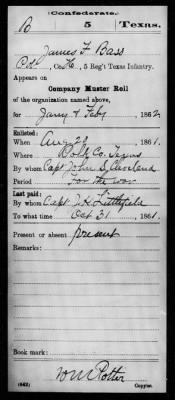 Confederate.
B 5 Texas.
James F Bass
Pvt, Co. H, 5 Reg't Texas Infantry.
Appears on
Company Muster Roll
of the organization named above,
for Jany & Feby, 1862
Enlisted:
When Aug 28, 1861.
Where Polk Co. Texas
By whom Capt John S Cleveland
Period For the war
Last paid:
By whom Capt J. H. Littlefield
To what time Oct 31, 1861.
Present or absent present
Remarks:
Book mark:
Wm Potter
(642) Copyist.